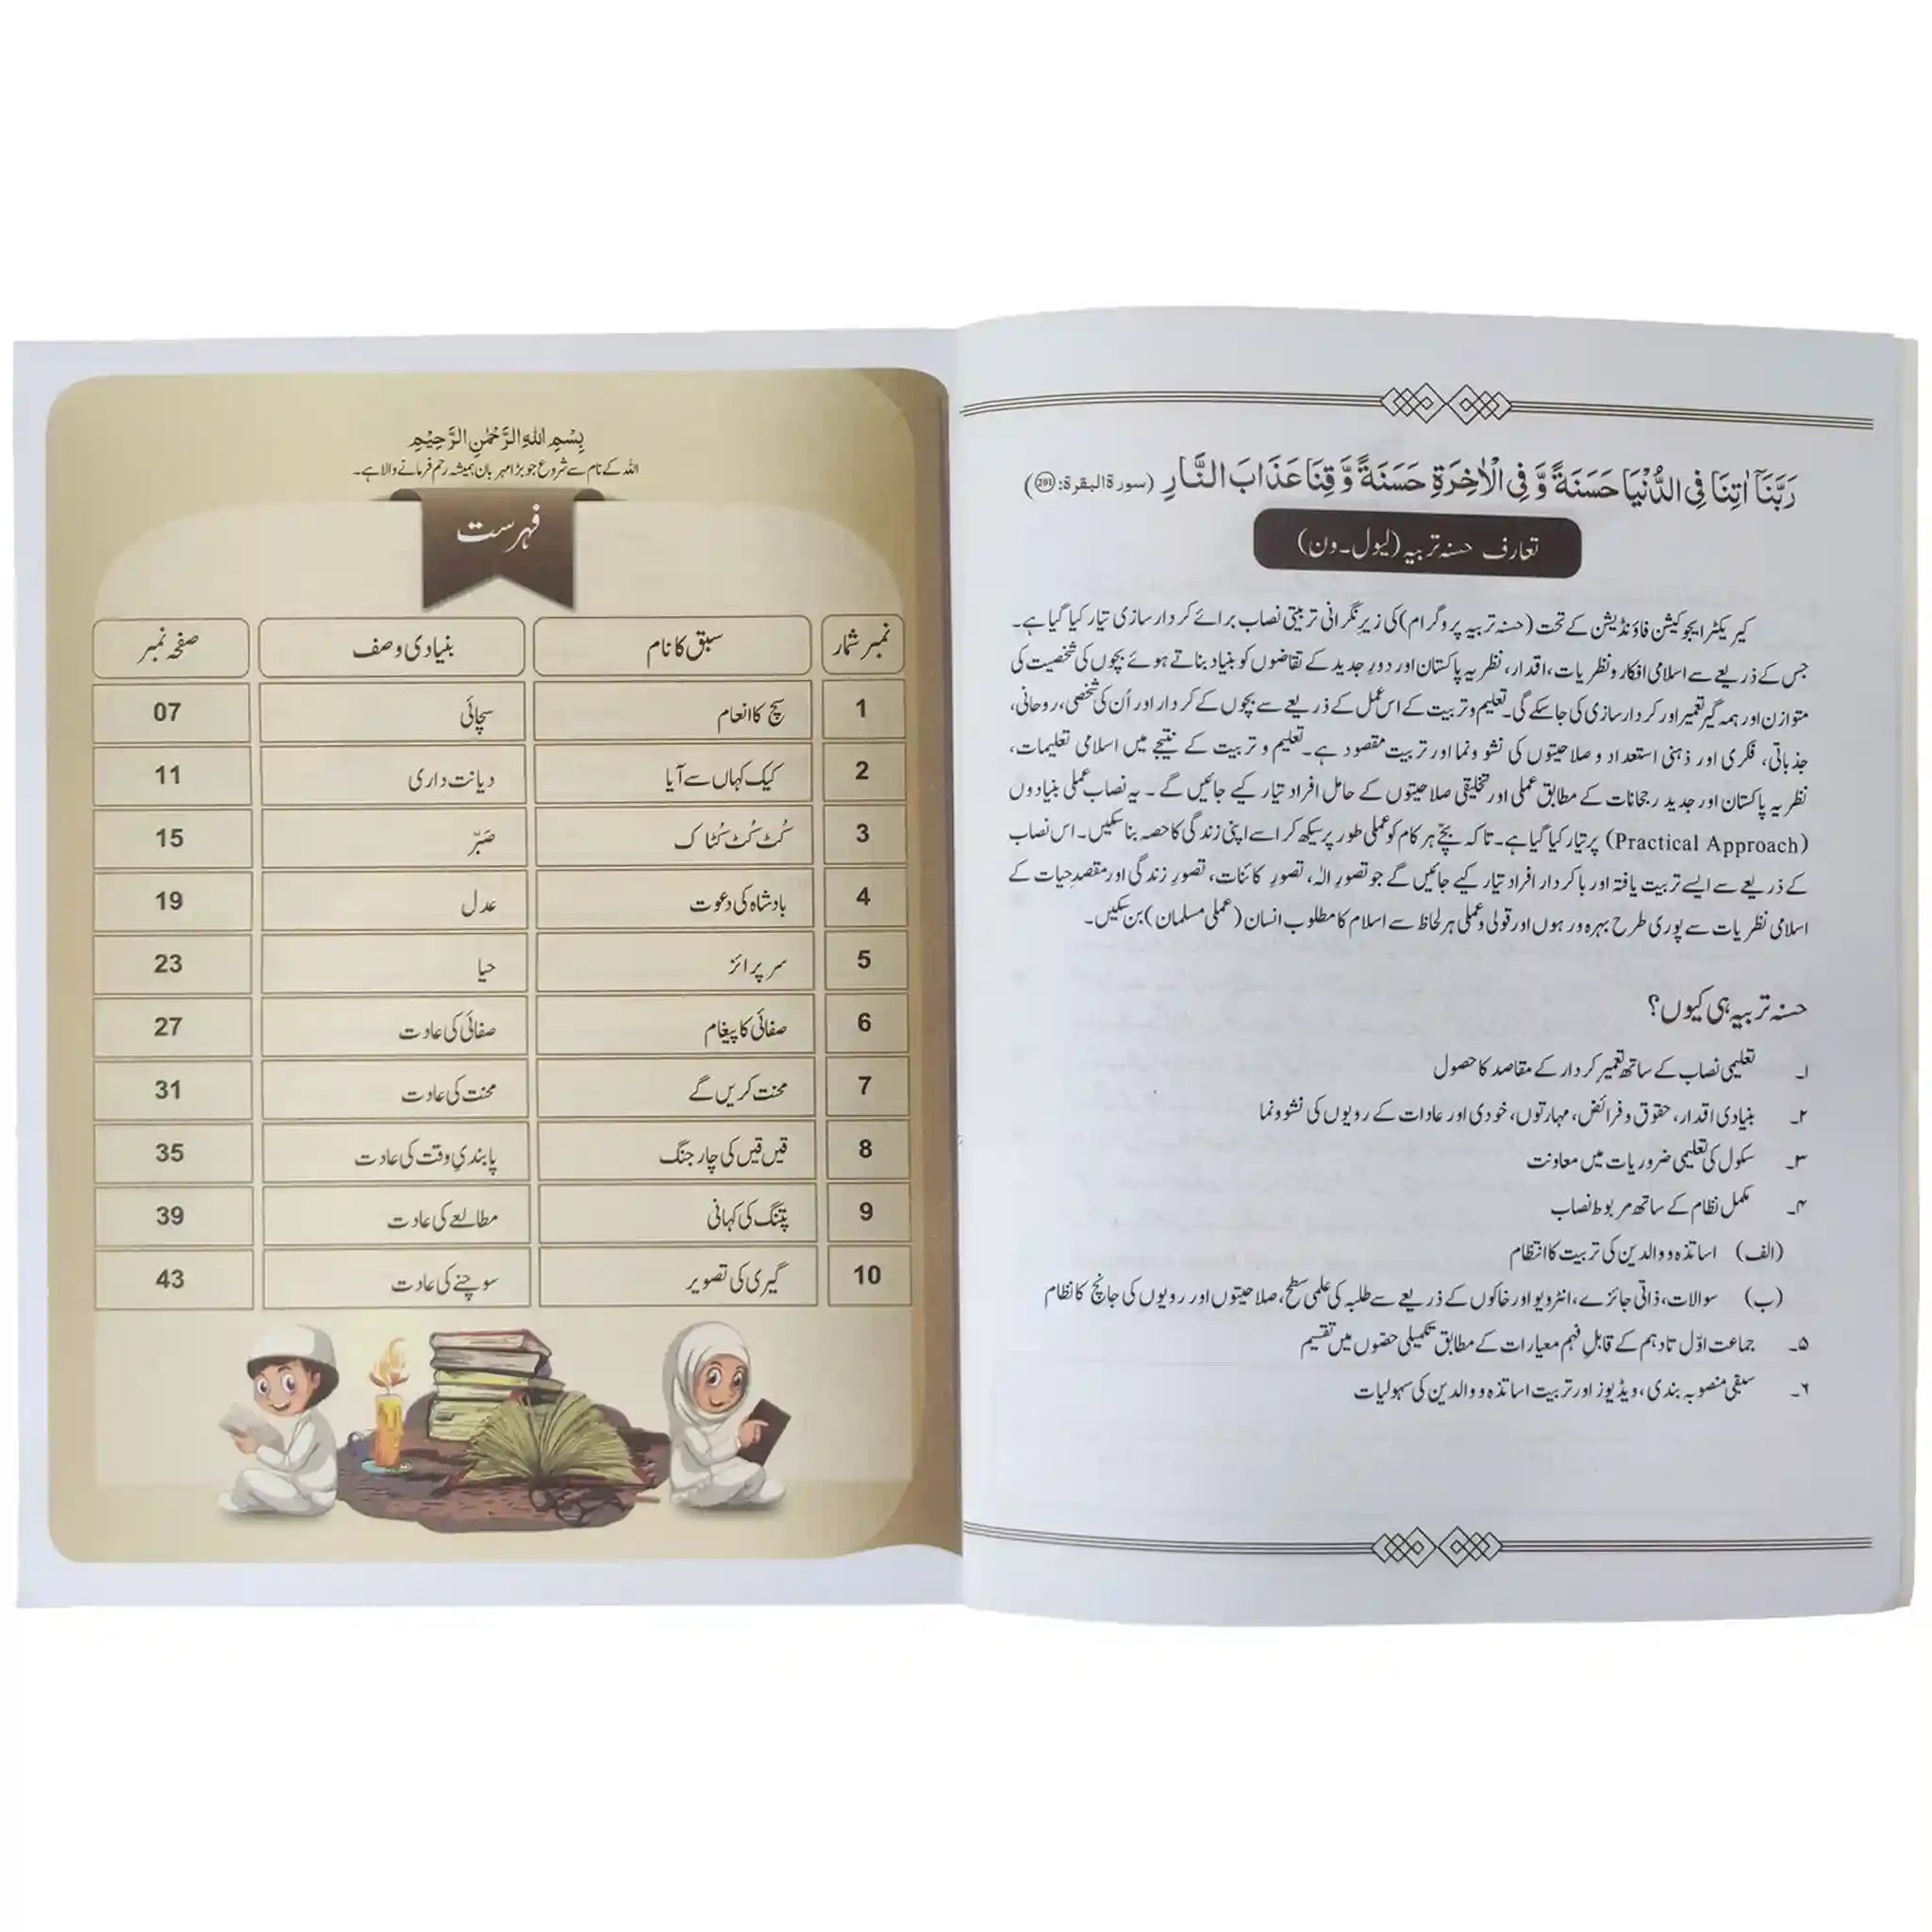 بِسْمِ اللهِ الرَّحْمٰنِ الرَّحِيْمِ
اللہ کے نام سے شروع جو بڑا مہربان ہمیشہ رحم فرمانے والا ہے۔
فہرست
نمبر شمار سبق کا نام بنیادی وصف صفحہ نمبر
1 سچ کا انعام سچائی 07
2 کیک کہاں سے آیا دیانت داری 11
3 کُٹ کُٹ کُٹاک صَبْر 15
4 بادشاہ کی دعوت عدل 19
5 سرپرائز حیا 23
6 صفائی کا پیغام صفائی کی عادت 27
7 محنت کریں گے محنت کی عادت 31
8 قیں قیں کی چارجنگ پابندیِ وقت کی عادت 35
9 پتنگ کی کہانی مطالعے کی عادت 39
10 گیری کی تصویر سوچنے کی عادت 43
رَبَّنَآ اٰتِنَا فِی الدُّنْیَا حَسَنَةً وَّ فِی الْاٰخِرَةِ حَسَنَةً وَّ قِنَا عَذَابَ النَّارِ (سورة البقرة: 201)
تعارف حسنہ تربیہ (لیول۔ون)
کیریکٹر ایجوکیشن فاؤنڈیشن کے تحت (حسنہ تربیہ پروگرام) کی زیرِ نگرانی تربیتی نصاب برائے کردار سازی تیار کیا گیا ہے۔
جس کے ذریعے سے اسلامی افکار و نظریات، اقدار، نظریہ پاکستان اور دورِ جدید کے تقاضوں کو بنیاد بناتے ہوئے بچوں کی شخصیت کی
متوازن اور ہمہ گیر تعمیر اور کردار سازی کی جا سکے گی۔ تعلیم و تربیت کے اس عمل کے ذریعے سے بچوں کے کردار اور اُن کی شخصی، روحانی،
جذباتی، فکری اور ذہنی استعداد و صلاحیتوں کی نشو ونما اور تربیت مقصود ہے۔ تعلیم و تربیت کے نتیجے میں اسلامی تعلیمات،
نظریہ پاکستان اور جدید رجحانات کے مطابق عملی اور تخلیقی صلاحیتوں کے حامل افراد تیار کیے جائیں گے۔ یہ نصاب عملی بنیادوں
(Practical Approach) پر تیار کیا گیا ہے۔ تاکہ بچّے ہر کام کو عملی طور پر سیکھ کر اسے اپنی زندگی کا حصہ بنا سکیں۔ اس نصاب
کے ذریعے سے ایسے تربیت یافتہ اور باکردار افراد تیار کیے جائیں گے جو تصورِ الٰہ، تصورِ کائنات، تصورِ زندگی اور مقصدِ حیات کے
اسلامی نظریات سے پوری طرح بہرہ ور ہوں اور قولی و عملی ہر لحاظ سے اسلام کا مطلوب انسان (عملی مسلمان) بن سکیں۔
حسنہ تربیہ ہی کیوں؟
۱۔ تعلیمی نصاب کے ساتھ تعمیرِ کردار کے مقاصد کا حصول
۲۔ بنیادی اقدار، حقوق و فرائض، مہارتوں، خودی اور عادات کے رویوں کی نشو ونما
۳۔ سکول کی تعلیمی ضروریات میں معاونت
۴۔ مکمل نظام کے ساتھ مربوط نصاب
(الف) اساتذہ و والدین کی تربیت کا انتظام
(ب) سوالات، ذاتی جائزے، انٹرویو اور خاکوں کے ذریعے سے طلبہ کی علمی سطح، صلاحیتوں اور رویوں کی جانچ کا نظام
۵۔ جماعت اوّل تا دہم کے قابلِ فہم معیارات کے مطابق تکمیلی حصّوں میں تقسیم
۶۔ سبقی منصوبہ بندی، ویڈیوز اور تربیت اساتذہ و والدین کی سہولیات